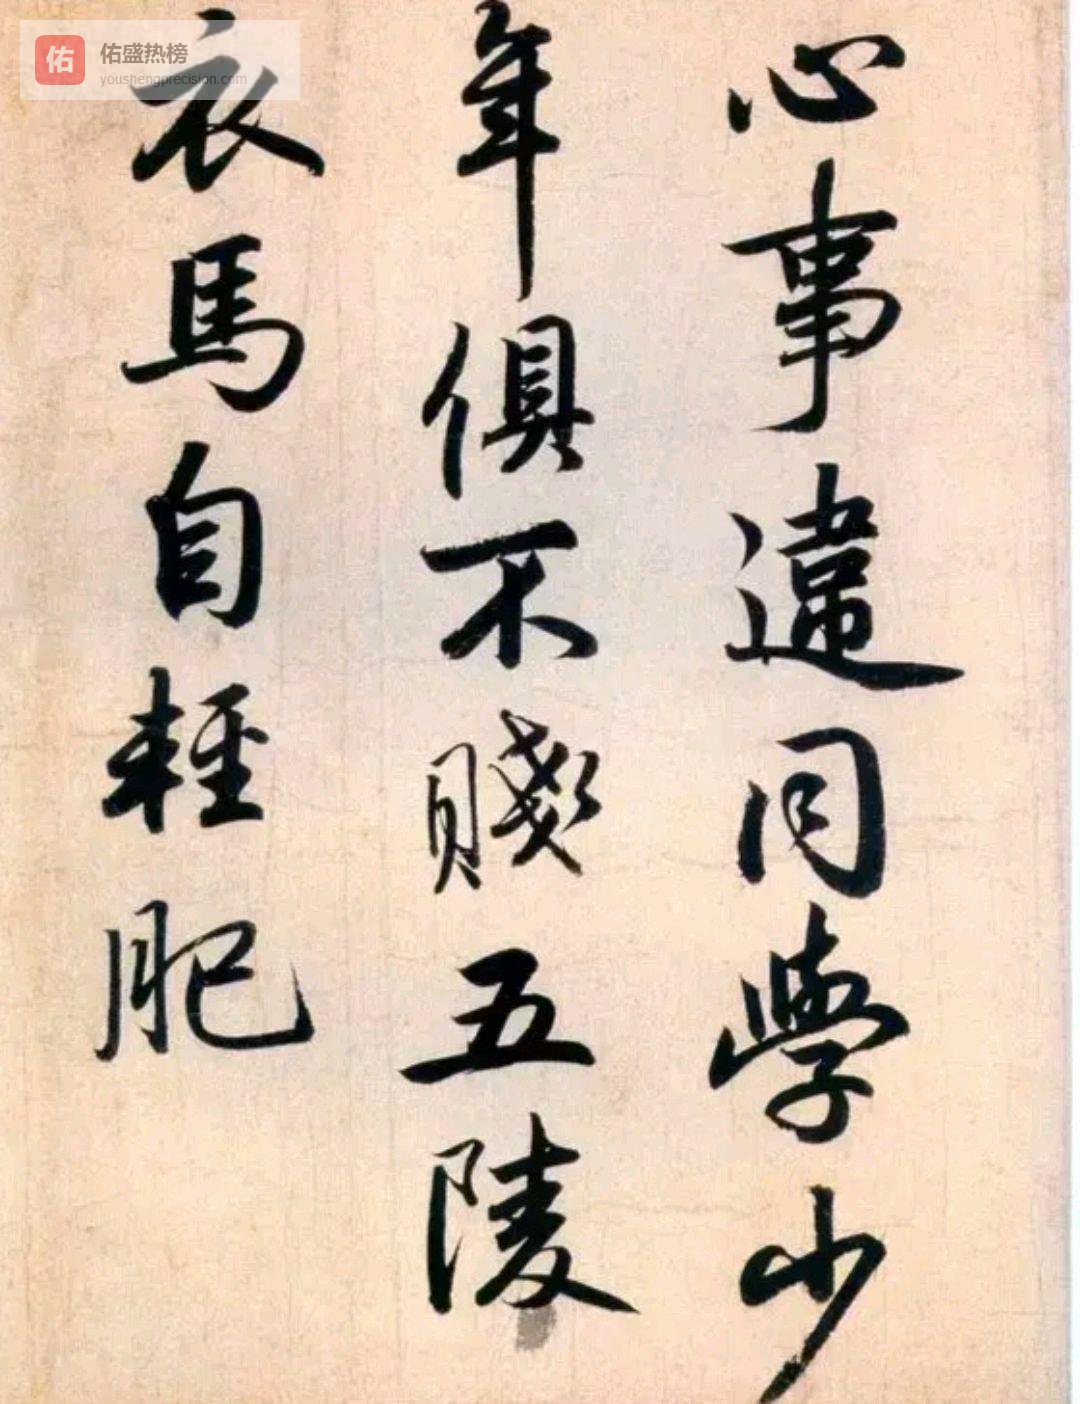 心事違同學少
年俱不賤五陵
衣馬自輕肥
佑
佑盛热榜
youshengprecision.com